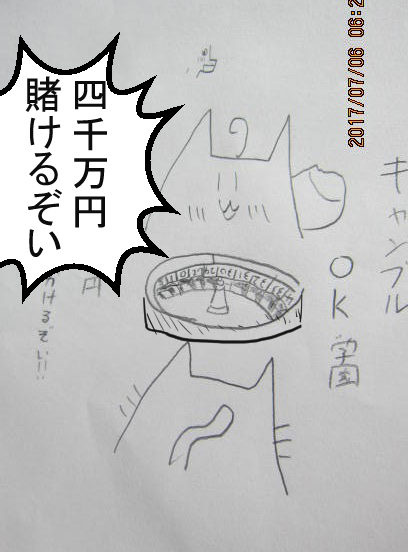 2017/07/06 06:2
ギャンブル
OK学園
四千万円
賭けるぞい
円
かけるぞい!!